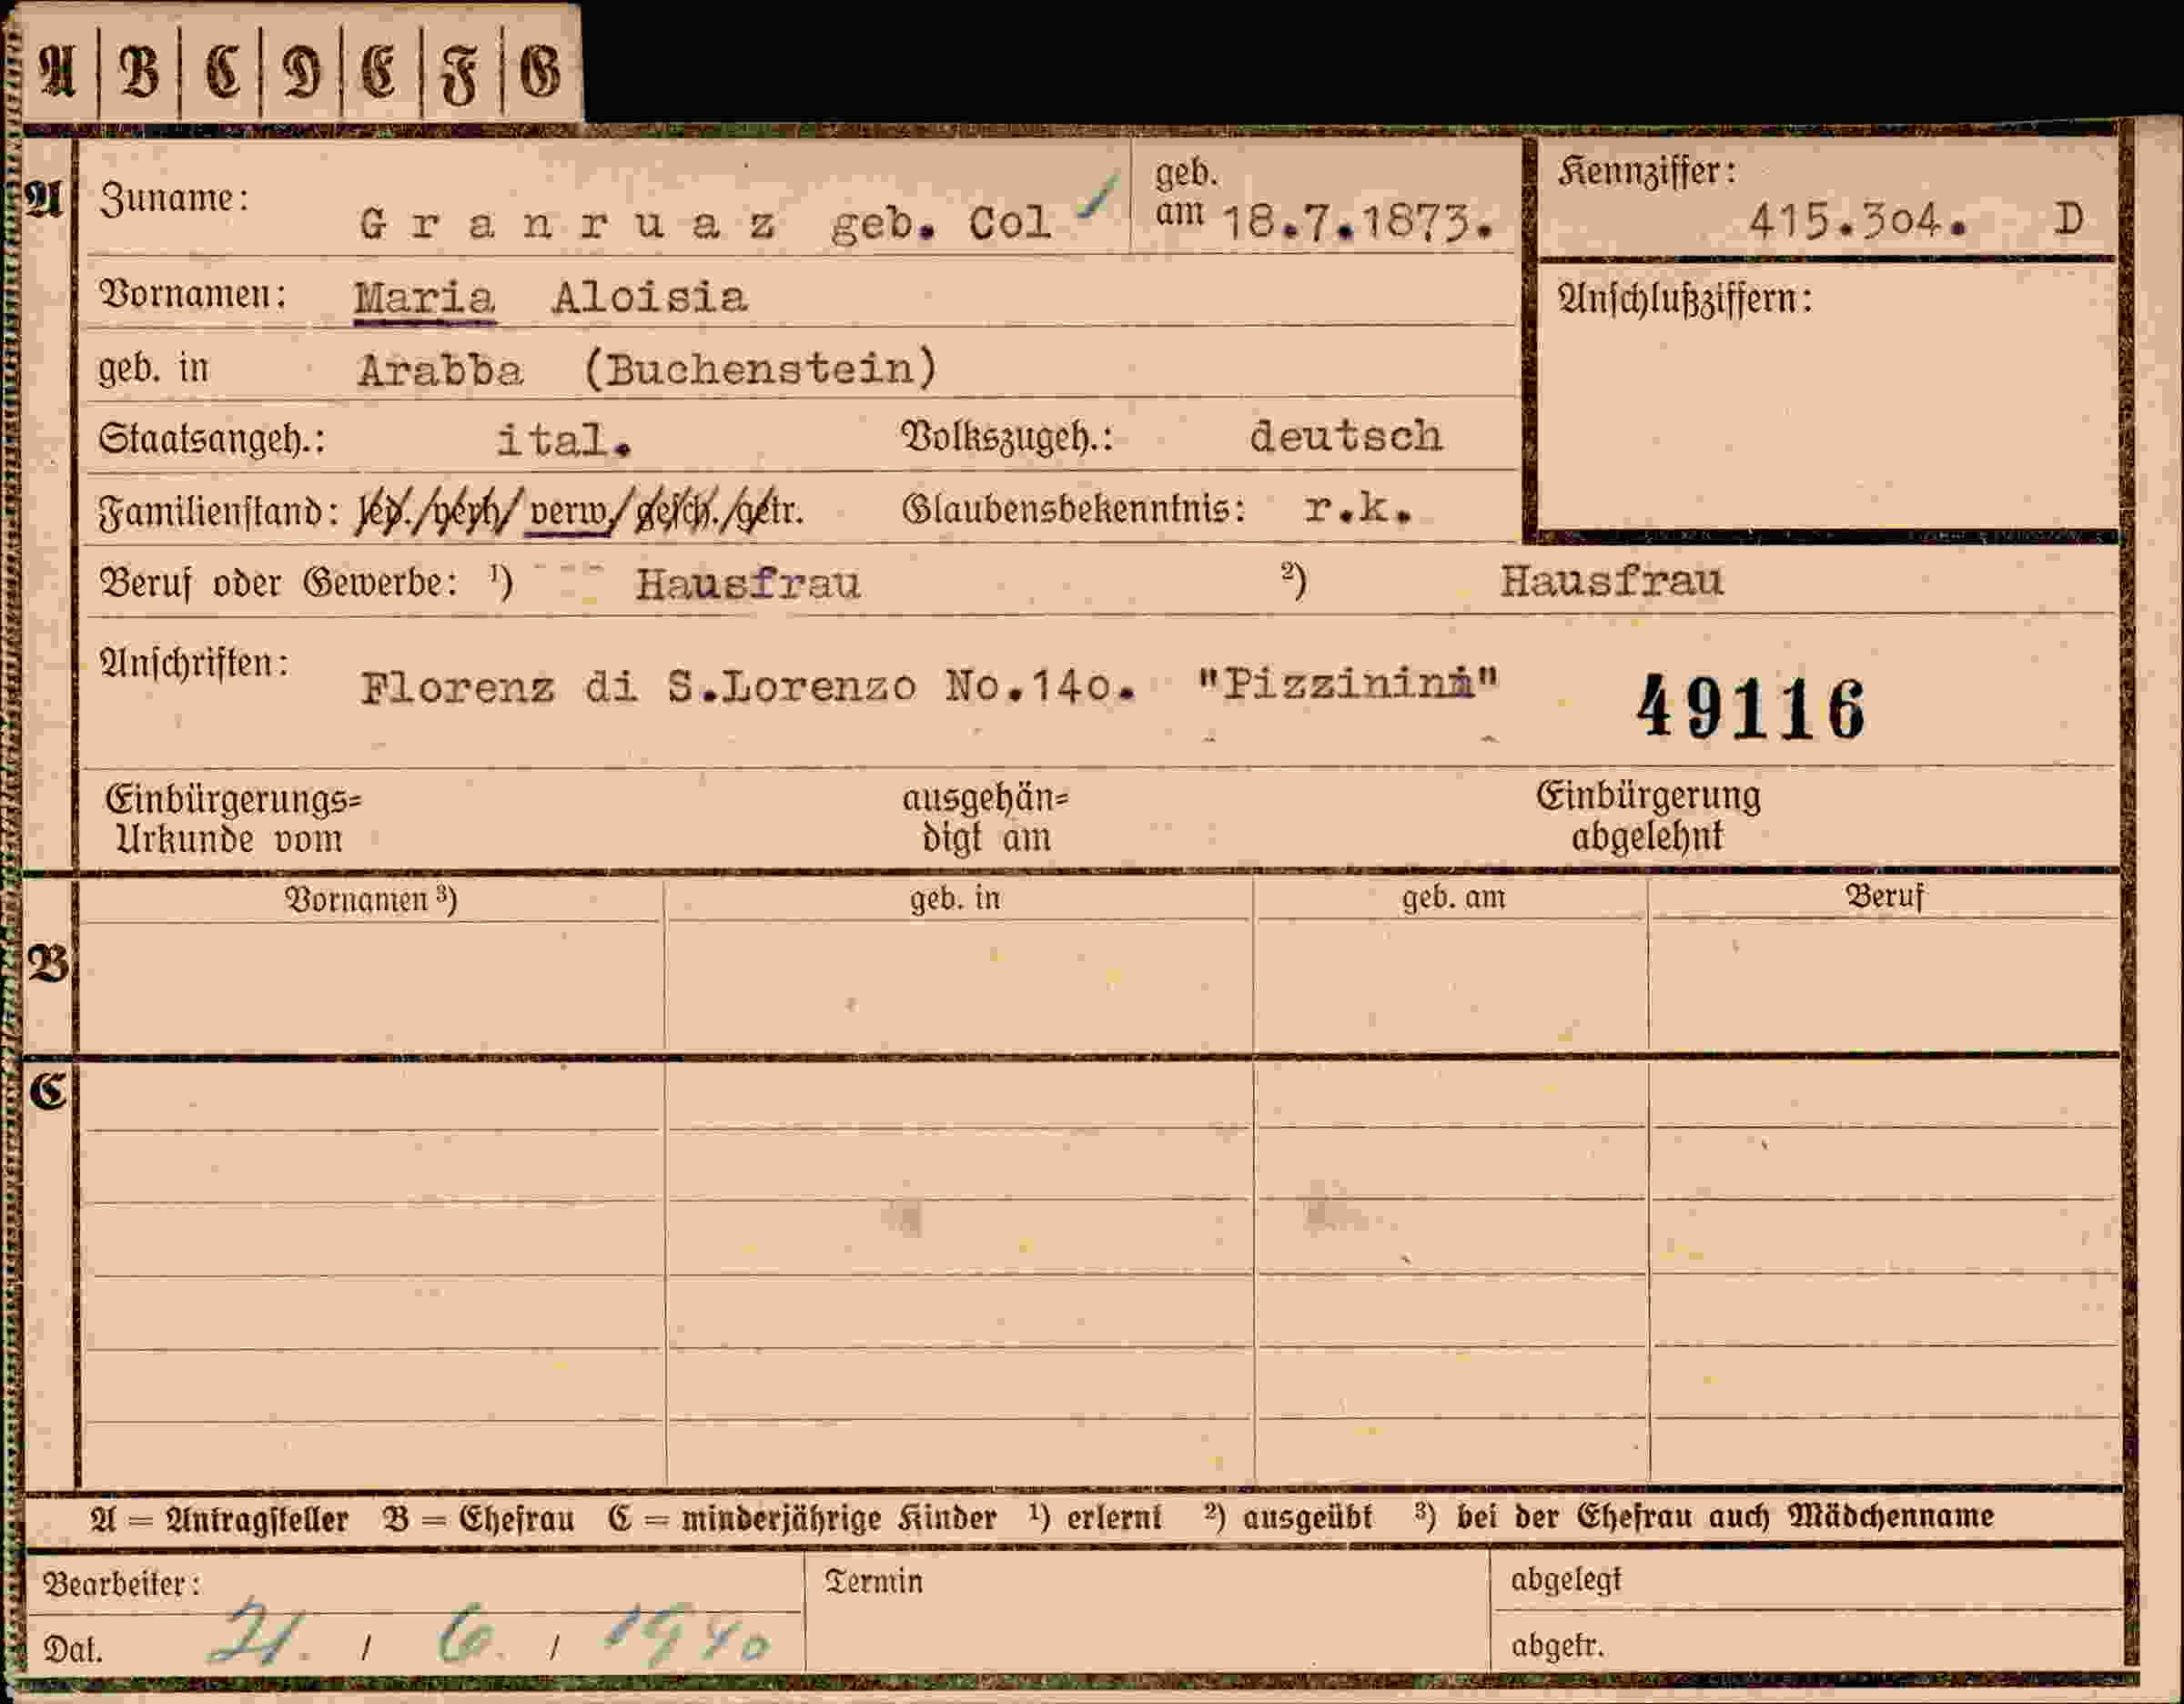 A B C D E F G
A Zuname: Granruaz geb. Col geb. am 18.7.1873. Kennziffer: 415.304. D
Vornamen: Maria Aloisia Anschlußziffern:
geb. in Arabba (Buchenstein)
Staatsangeh.: ital. Volkszugeh.: deutsch
Familienstand: led./verh/verw/gesch./getr. Glaubensbekenntnis: r.k.
Beruf oder Gewerbe: ¹) Hausfrau ²) Hausfrau
Anschriften: Florenz di S.Lorenzo No.14o. "Pizzinini" 49116
Einbürgerungs= ausgehän= Einbürgerung
Urkunde vom digt am abgelehnt
Vornamen ³) geb. in geb. am Beruf
B
C
A = Antragsteller B = Ehefrau C = minderjährige Kinder ¹) erlernt ²) ausgeübt ³) bei der Ehefrau auch Mädchenname
Bearbeiter: Termin abgelegt
Dat. 21. / 6. / 1940 abgetr.